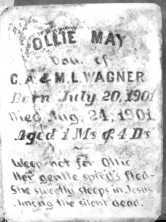 OLLIE MAY
Dau. of
C.A & M.L. WAGNER
Born July 20, 1901
Died Aug. 24, 1901
Aged 1 Ms 4 Ds
Weep not for Ollie
Her gentle spirit's fled
She sweetly sleeps in Jesus
Among the silent dead.